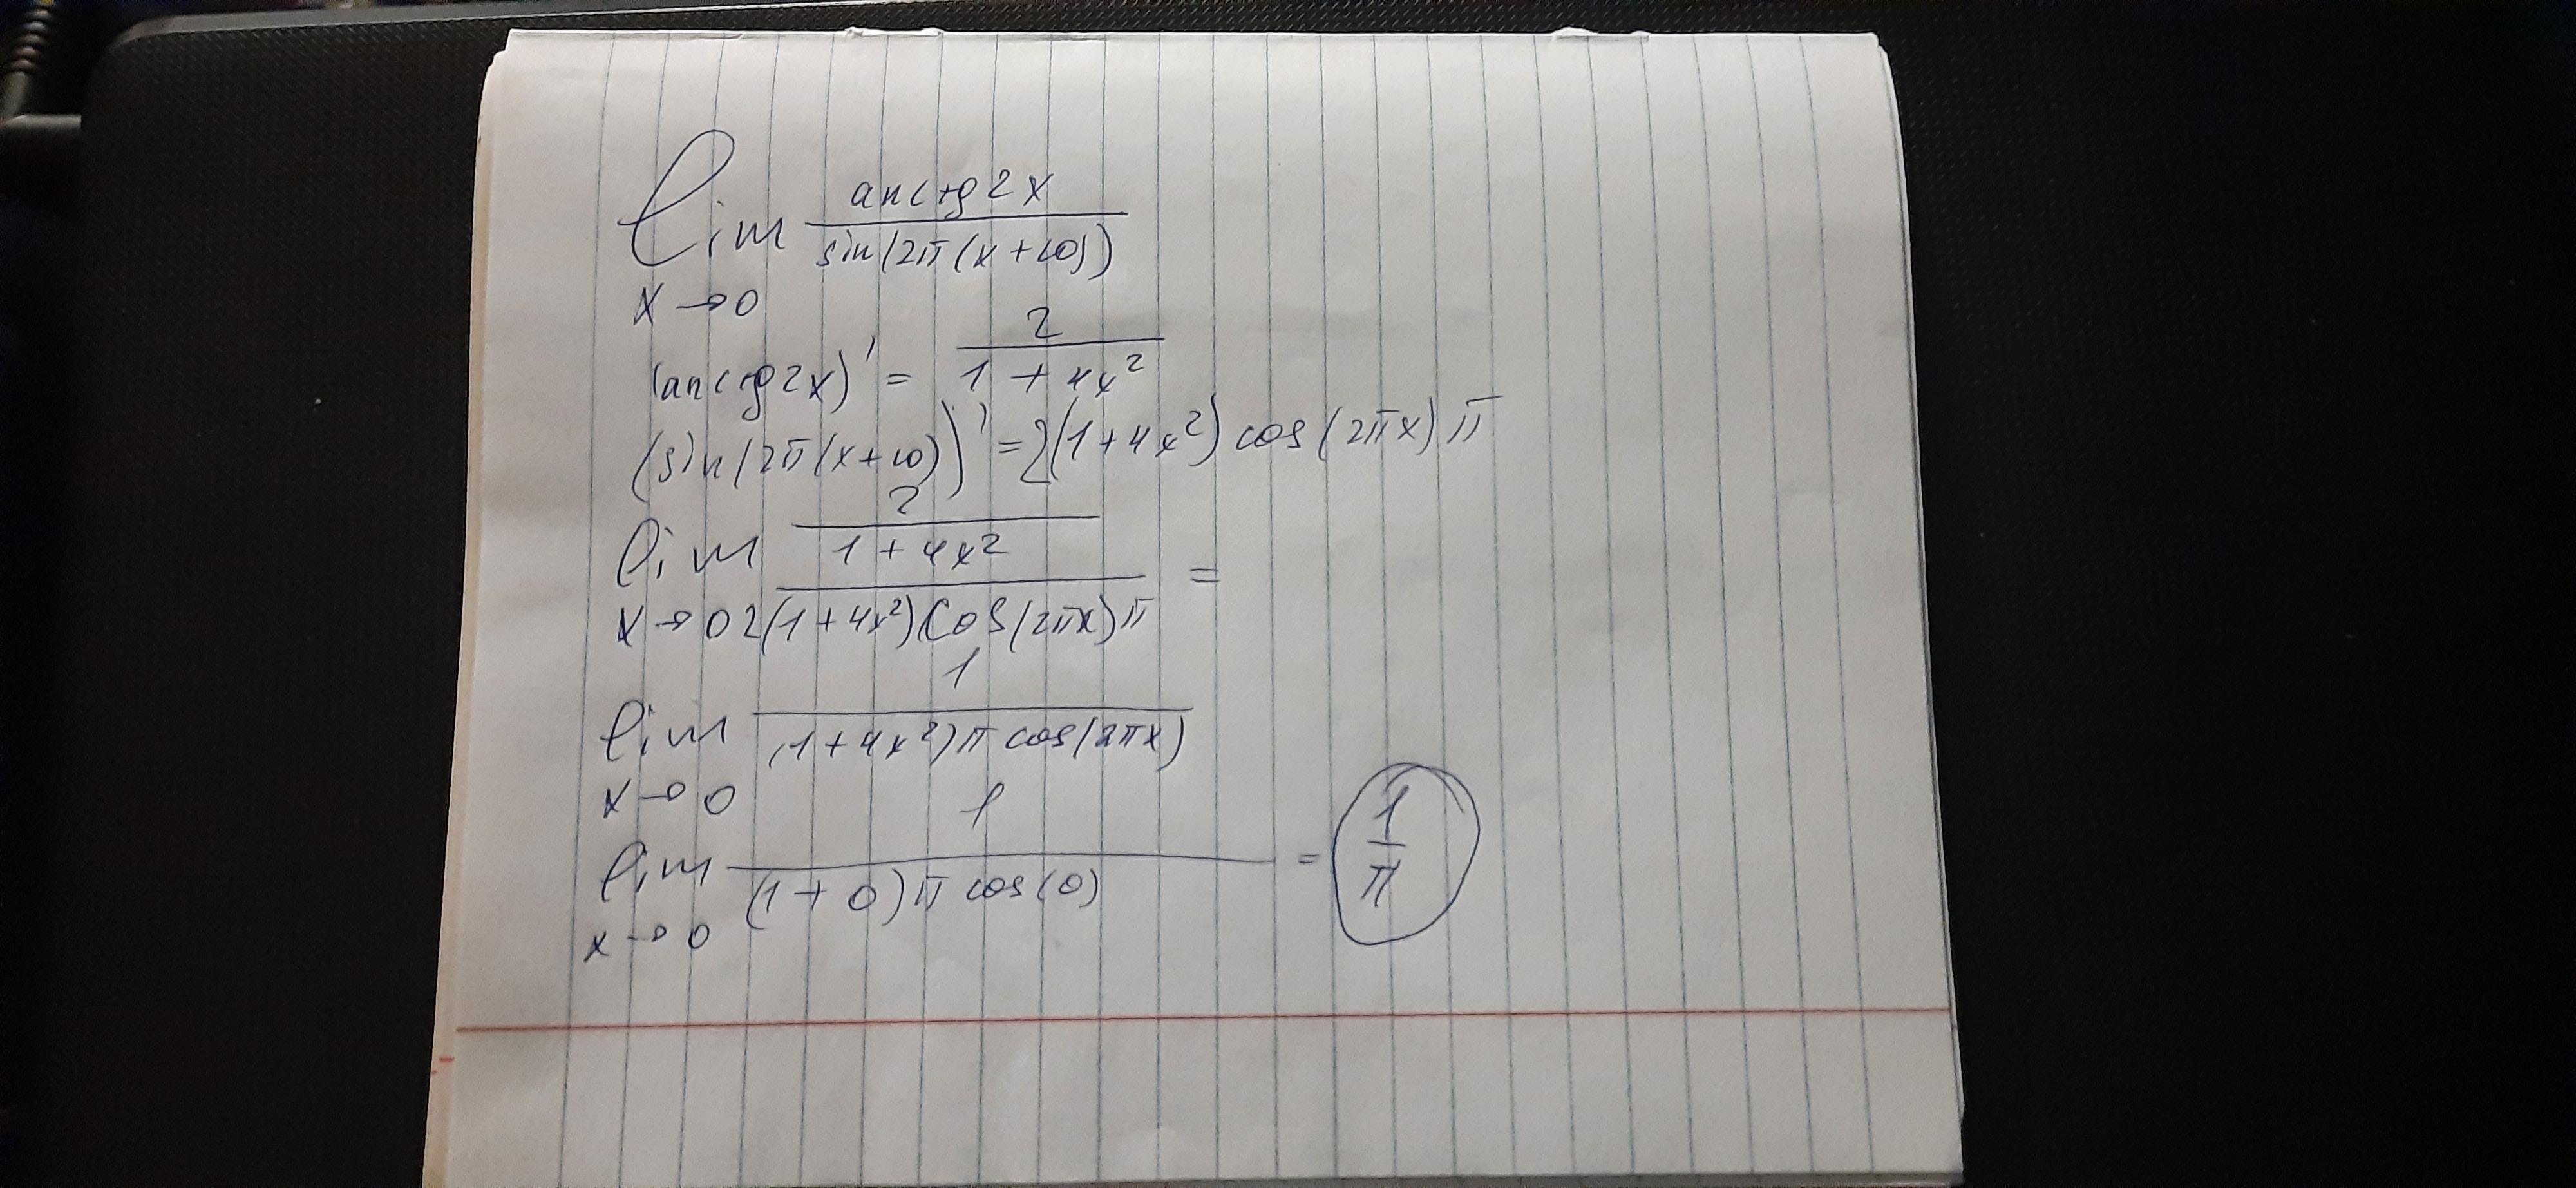 lim arctg2x / sin(2π(x+10))
x→0
(arctg2x)' = 2 / (1 + 4x²)
(sin(2π(x+10))' = 2(1+4x²) cos(2πx)π
lim (2 / (1 + 4x²)) / (2(1+4x²)cos(2πx)π) =
x→0
lim 1 / ((1+4x²)π cos(2πx))
x→0
lim 1 / ((1+0)π cos(0)) = 1/π
x→0